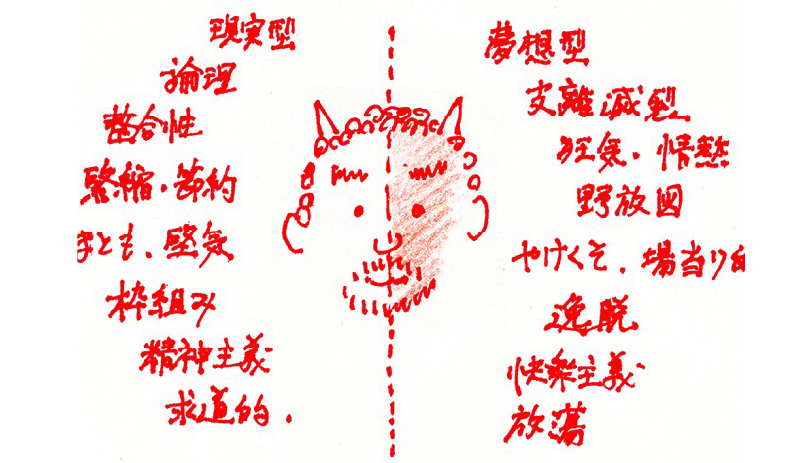 現実型
論理
整合性
緊縮・節約
まとも、堅気
枠組み
精神主義
求道的.
夢想型
支離滅裂
狂気・情熱
野放図
やけくそ、場当り的
逸脱
快楽主義
放蕩